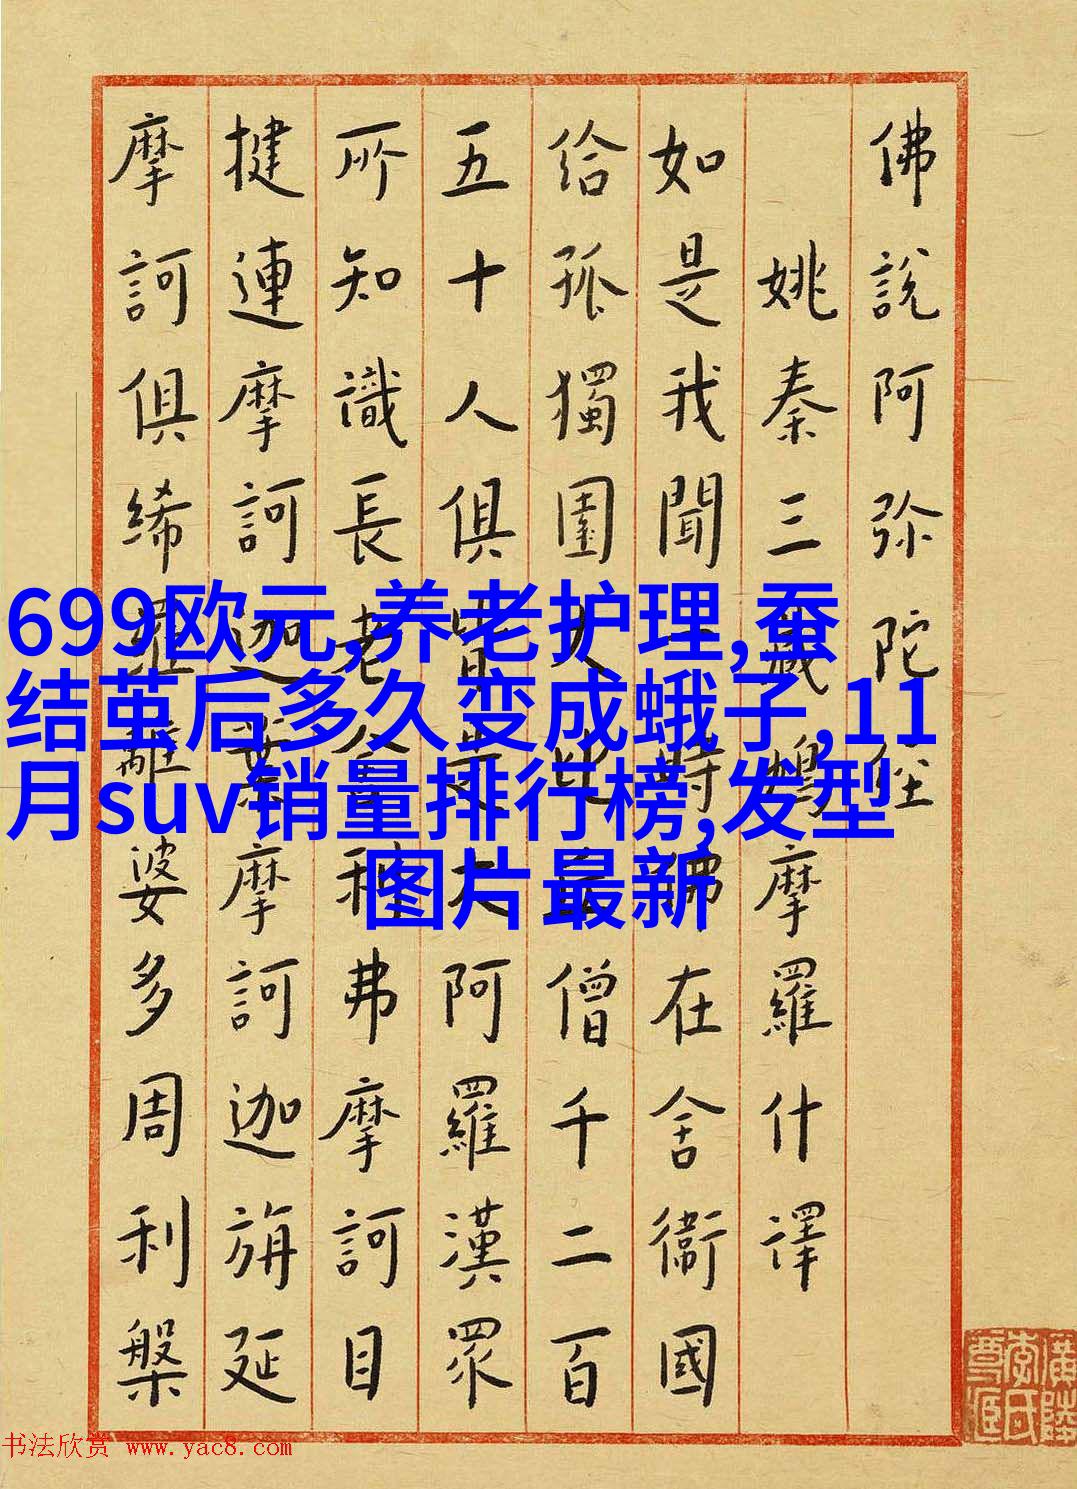 佛說阿弥陀経
姚秦三藏鳩摩羅什譯
如是我聞一時佛在舍衞國
給孤獨園大比丘僧千二百
五十人俱皆是大阿羅漢眾
所知識長老舍利弗摩訶目
揵連摩訶迦葉摩訶迦旃延
摩訶俱絺羅離婆多周利槃
699欧元,养老护理,蚕
结茧后多久变成蛾子,11
月suv销量排行榜,发型
图片最新
书法欣赏 www.yac8.com